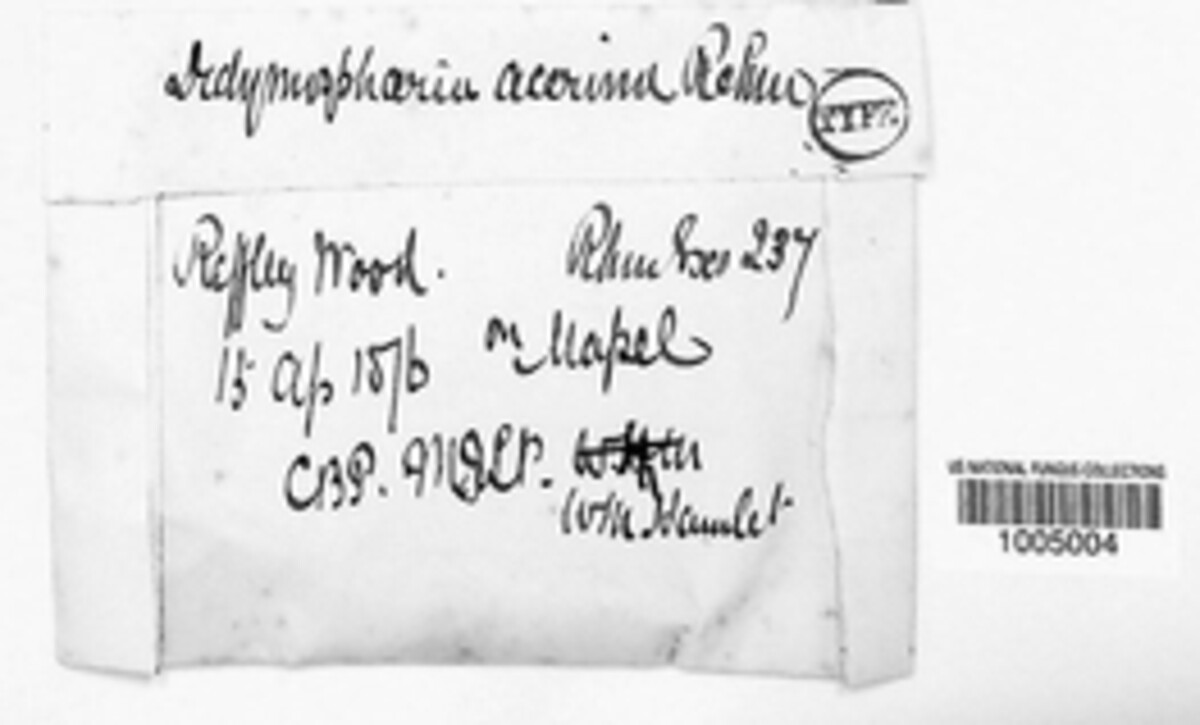 Didymosphaeria acerina Rehm TYPE.
Reffley Wood. Rehm Exs 237
15 Ap 1876 on Mapel
CBP.
Wm Hamlet
US NATIONAL FUNGUS COLLECTIONS
1005004